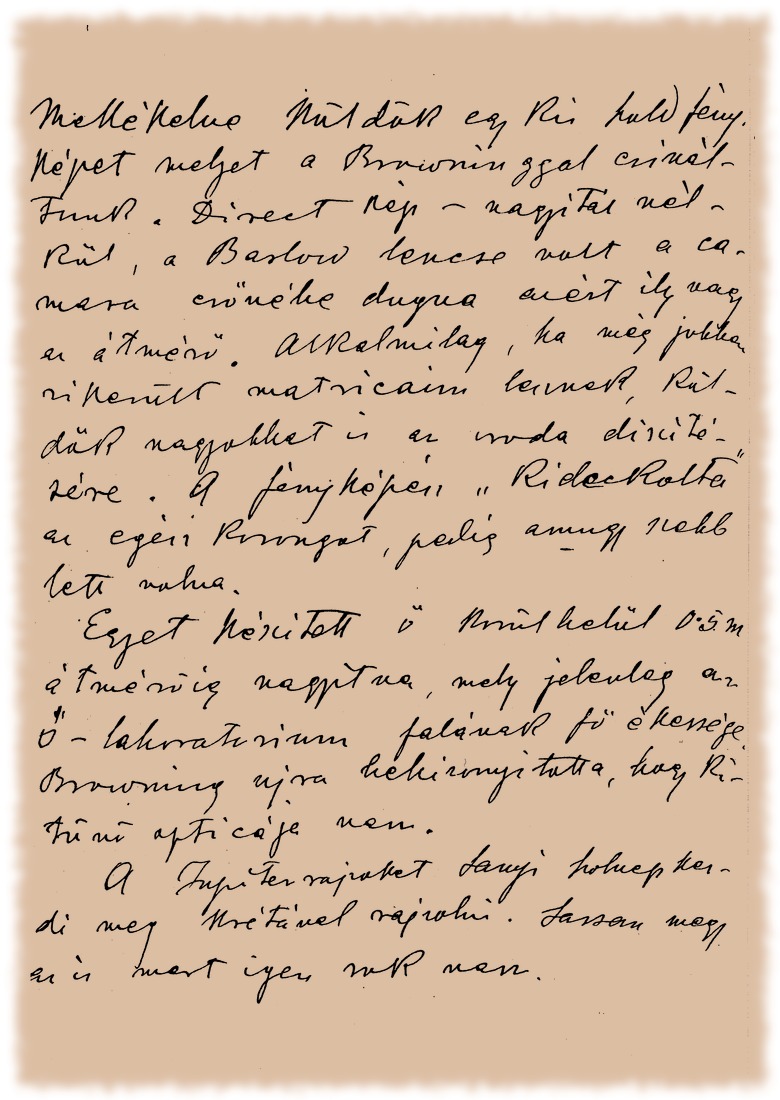 Mellékelve küldök egy kis hold fény-
képet melyet a Browninggal csinál-
tunk. Direct kép - nagyitás nél-
kül, a Barlow lencse volt a ca-
mara csövébe dugva azért ily nagy
az átmérő. Alkalmilag, ha még jobban
sikerült matricáim lesznek, kül-
dök nagyobbat is az iroda diszité-
sére. A fényképész „kideckolta"
az egész korongot, pedig amugy szebb
lett volna.
Egyet készitett ő körülbelül 0.5 m
átmérőig nagyitva, mely jelenleg az
ő - laboratorium falának fő ékessége
Browning ujra bebizonyitotta, hogy ki-
tünő opticája van.
A Jupiter rajzokat Sanyi holnap kez-
di meg krétával rajzolni. Lassan megy
az is mert igen sok van.